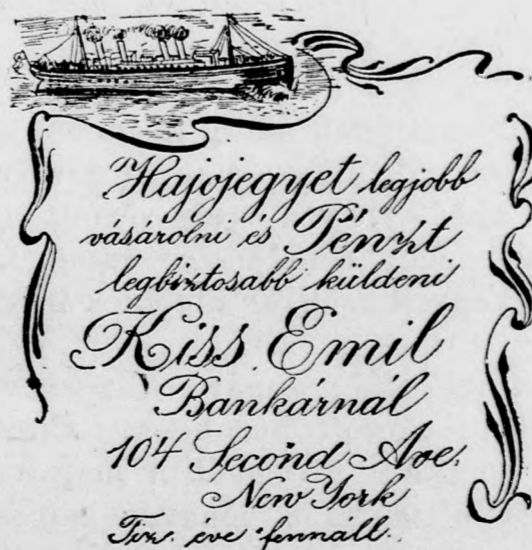 Hajojegyet legjobb
vásárolni és Pénzt
legbiztosabb küldeni
Kiss Emil
Bankárnál
104 Second Ave.
New York
Tiz éve fennáll.